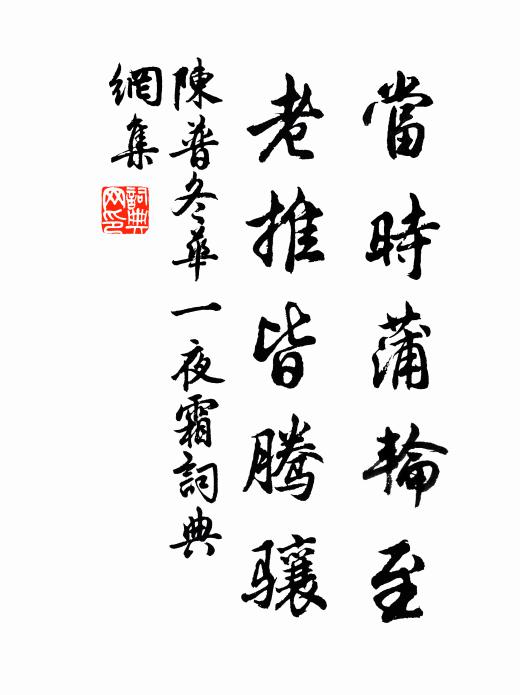 當時蒲輪至
老推皆騰骧
陳普冬華一夜霜詞典
網集
詞典網印